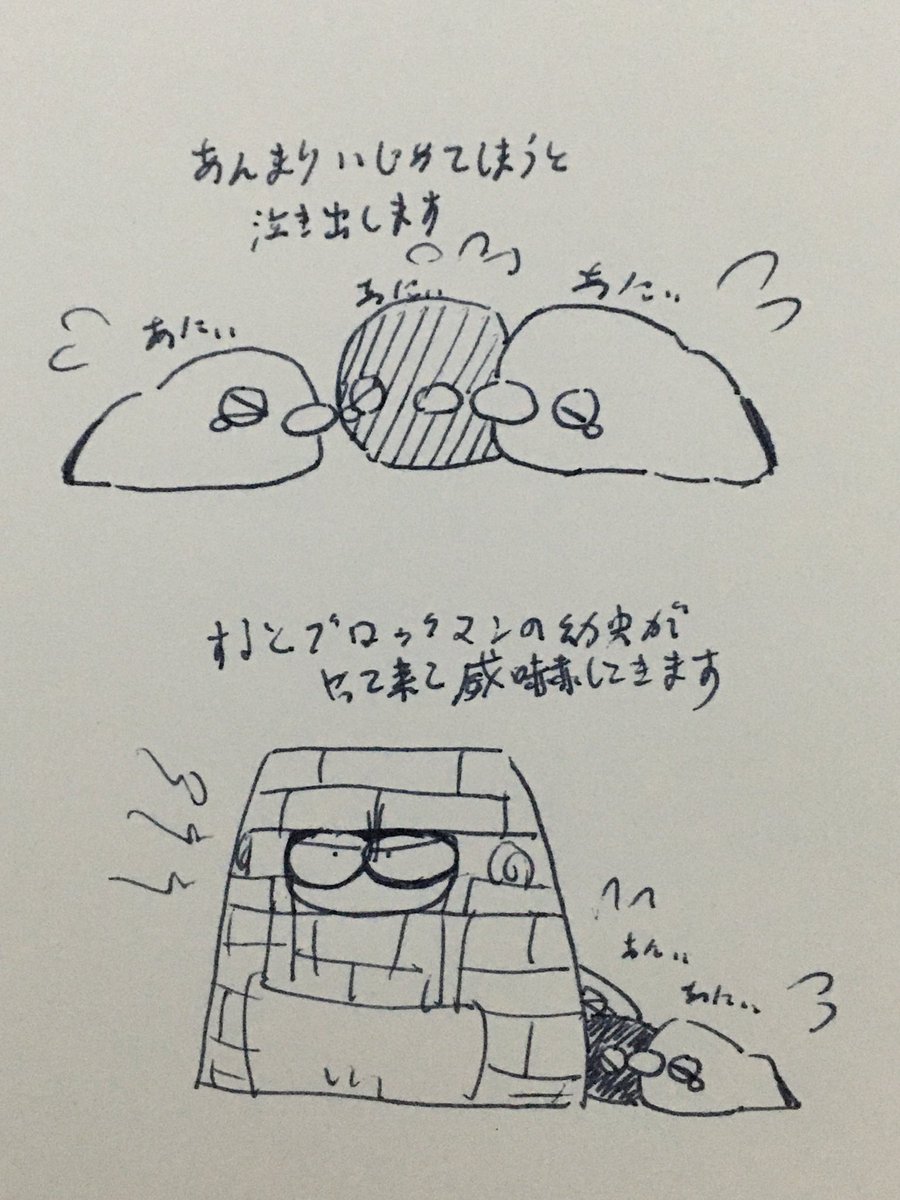 あんまりいじめてしまうと
泣き出します
あにぃ
あにぃ
あにぃ
するとブロックマンの幼虫が
やって来て威嚇してきます
あにぃ
あにぃ